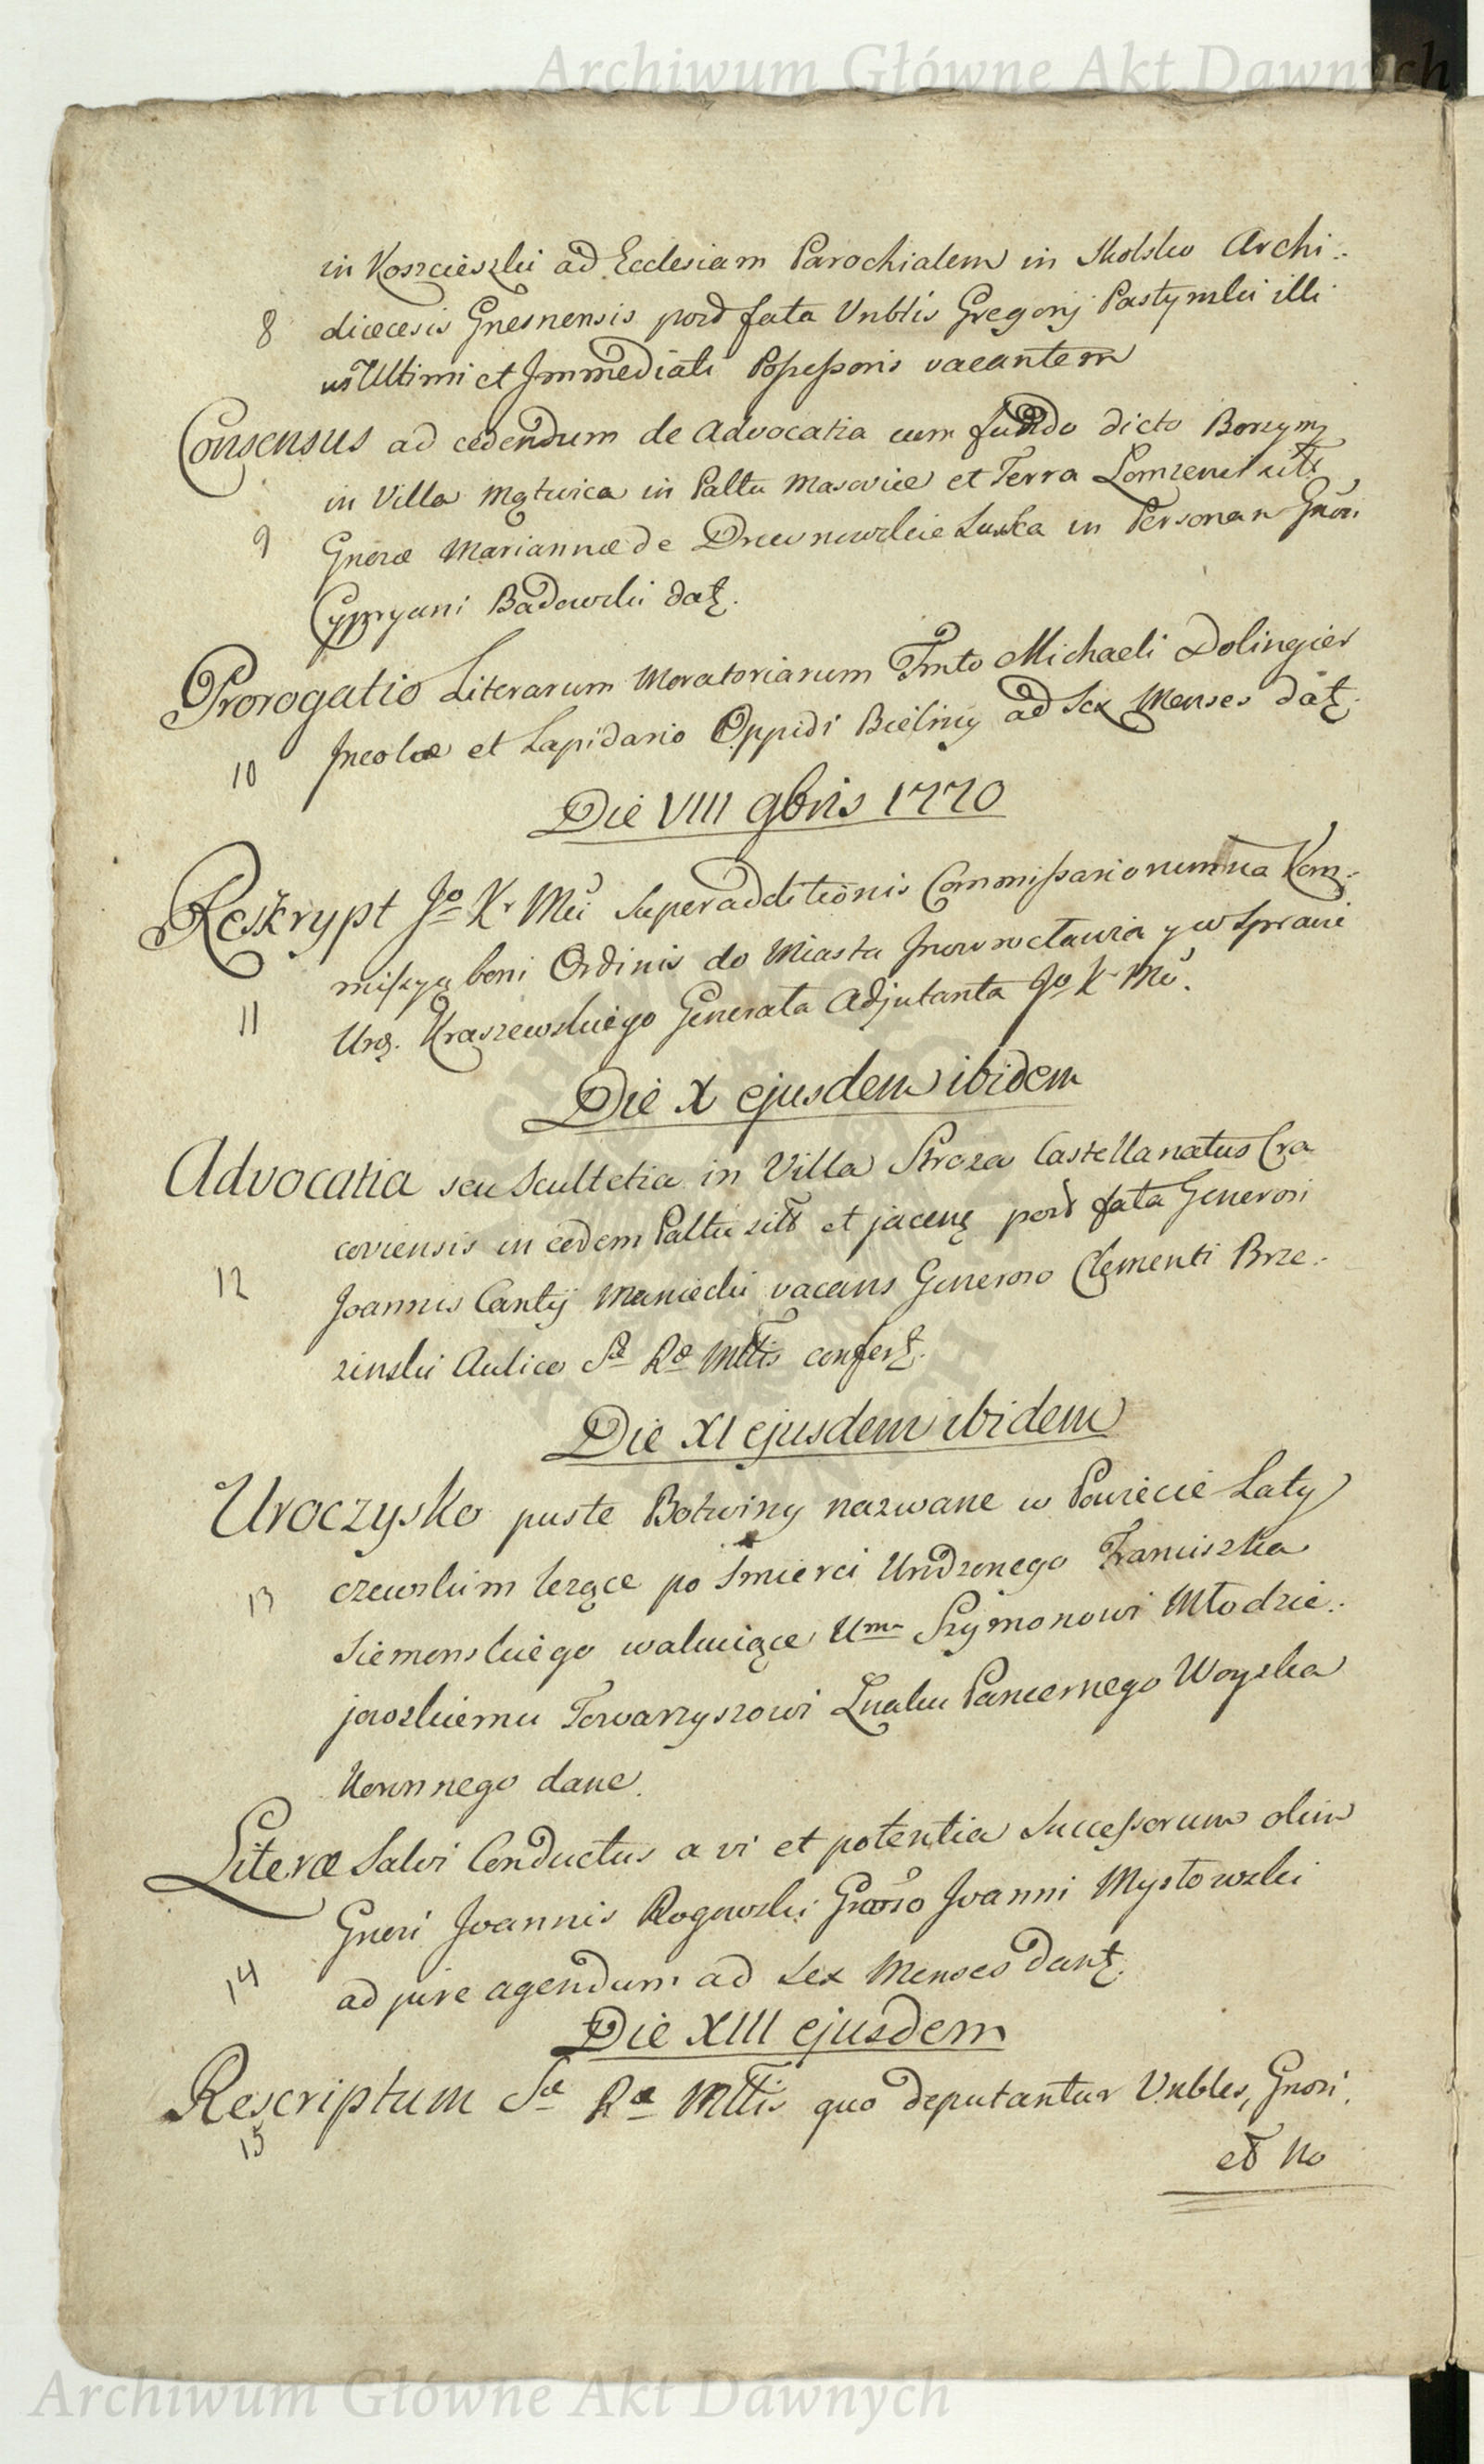 Archiwum Główne Akt Dawnych
in Koszcieszki ad Ecclesiam Parochialem in Skolsko Archi-
8 diœcesis Gnesnensis post fata Vnblis Gregorij Pastymski illi
us Ultimi et Immediati Possessoris vacantem
Consensus ad cedendum de Advocatia cum fundo dicto Borzymy
in Villa Mątwica in Paltu Masoviæ et Terra Lomzensi sitt
9 Gnosæ Mariannæ de Drewnowskie Luska in Personam Gnosi
Cypryani Badowski dat.
Prorogatio Literarum Moratoriarum Fmto Michaeli Dolingier
10 Incolæ et Lapidario Oppidi Bieliny ad Sex Menses dat.
Die VIII 9bris 1770
Reskrypt Jo Kr Mci Superadditionis Commissariorum na Kom-
missyą boni Ordinis do Miasta Inowrocławia y w Sprawie
11 Urą. Kraszewskiego Generała Adjutanta Jo K Mci.
Die X ejusdem ibidem
Advocatia seu Scultetia in Villa Stroza Castellanatus Cra
coviensis in eodem Paltu sitt et jacen post fata Generosi
12 Joannis Cantij Maniecki vacans Generoso Clementi Brze-
zinski Aulico Sæ Ræ Mttis confert.
Die XI ejusdem ibidem
Uroczysko puste Botwiny nazwane w Powiecie Laty
13 czewskim lezące po Smierci Urodzonego Franciszka
Siemonskiego wakuiące Um Szymonowi Młodzie-
jowskiemu Towarzyszowi Znaku Pancernego Woyska
Koronnego dane.
Literæ Salvi Conductus a vi et potentia Successorum olim
Gnosi Joannis Rogowski Gnoso Joanni Mystowski
14 ad jure agendum ad Sex Menses dant.
Die XIII ejusdem
Rescriptum Sæ Ræ Mttis quo deputantur Vnbles, Gnosi,
15
et No
Archiwum Główne Akt Dawnych